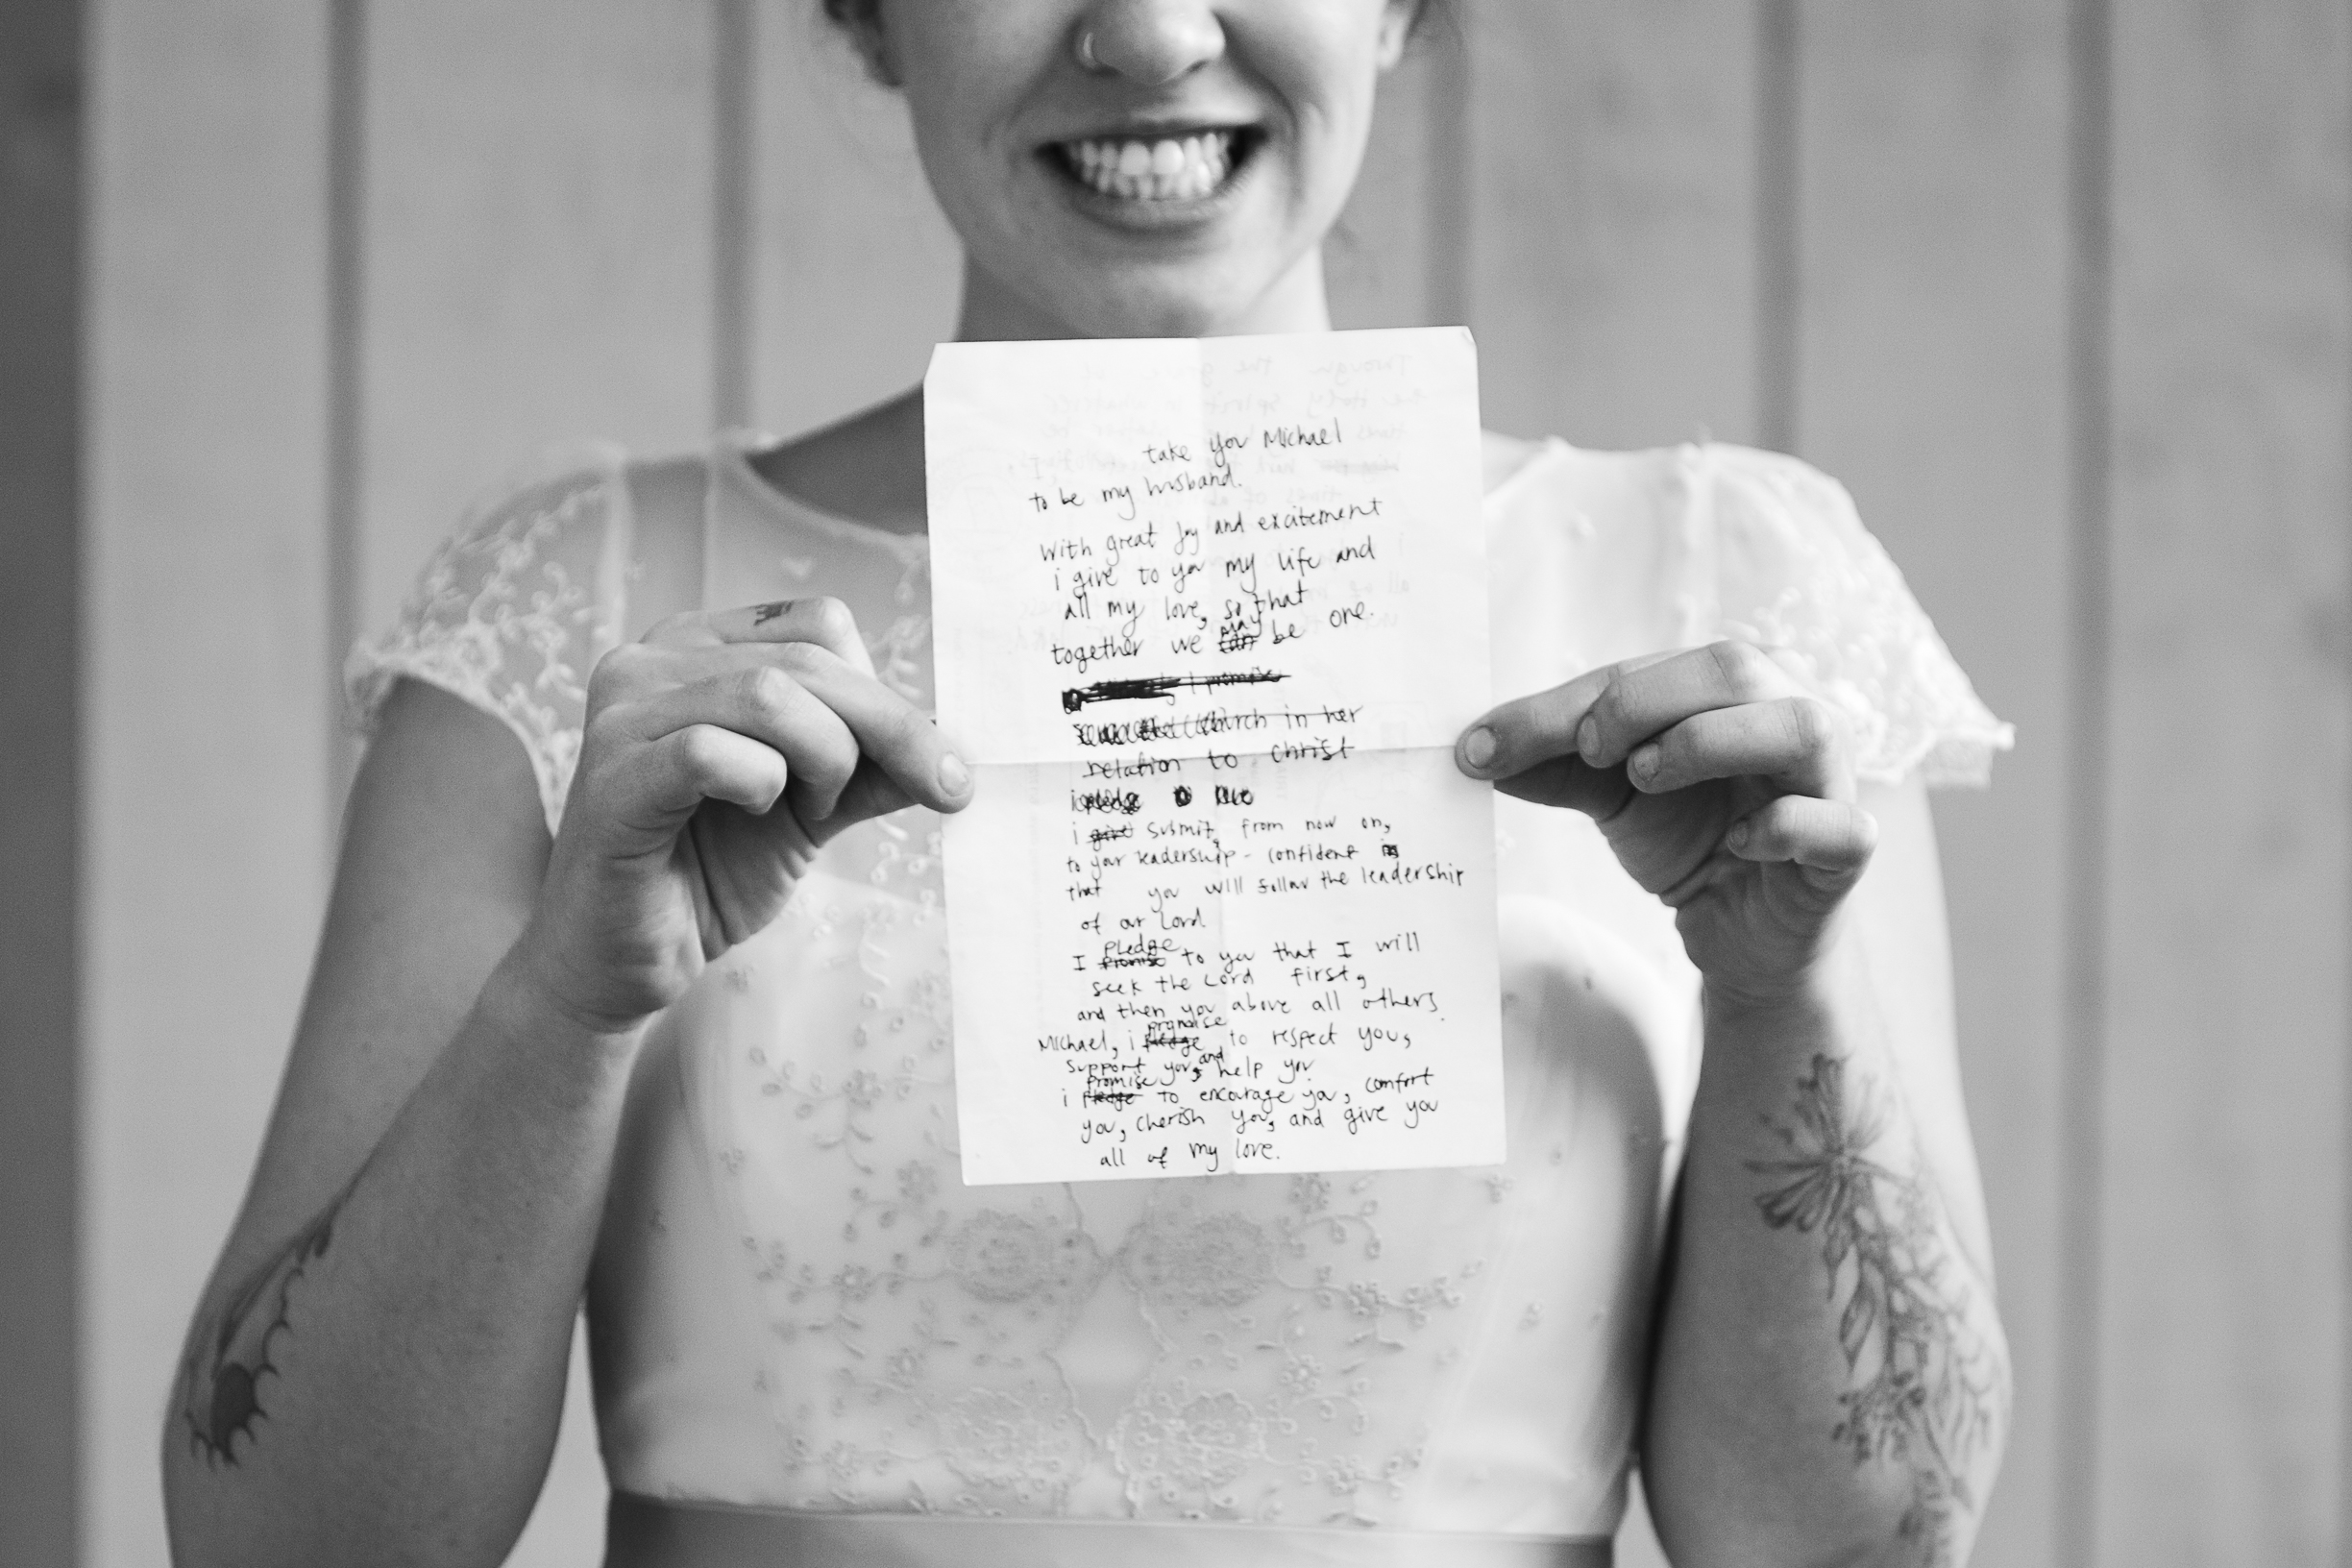 I take you Michael
to be my husband.
With great joy and excitement
i give to you my life and
all my love, so that
together we can may be one.
I promise
church in her
relation to christ
i give submit, from now on,
to your leadership - confident
that you will follow the leadership
of our Lord
I promise pledge to you that I will
seek the Lord first,
and then you above all others.
Michael, i pledge promise to respect you,
support you, and help you
i pledge promise to encourage you, comfort
you, cherish you, and give you
all of my love.